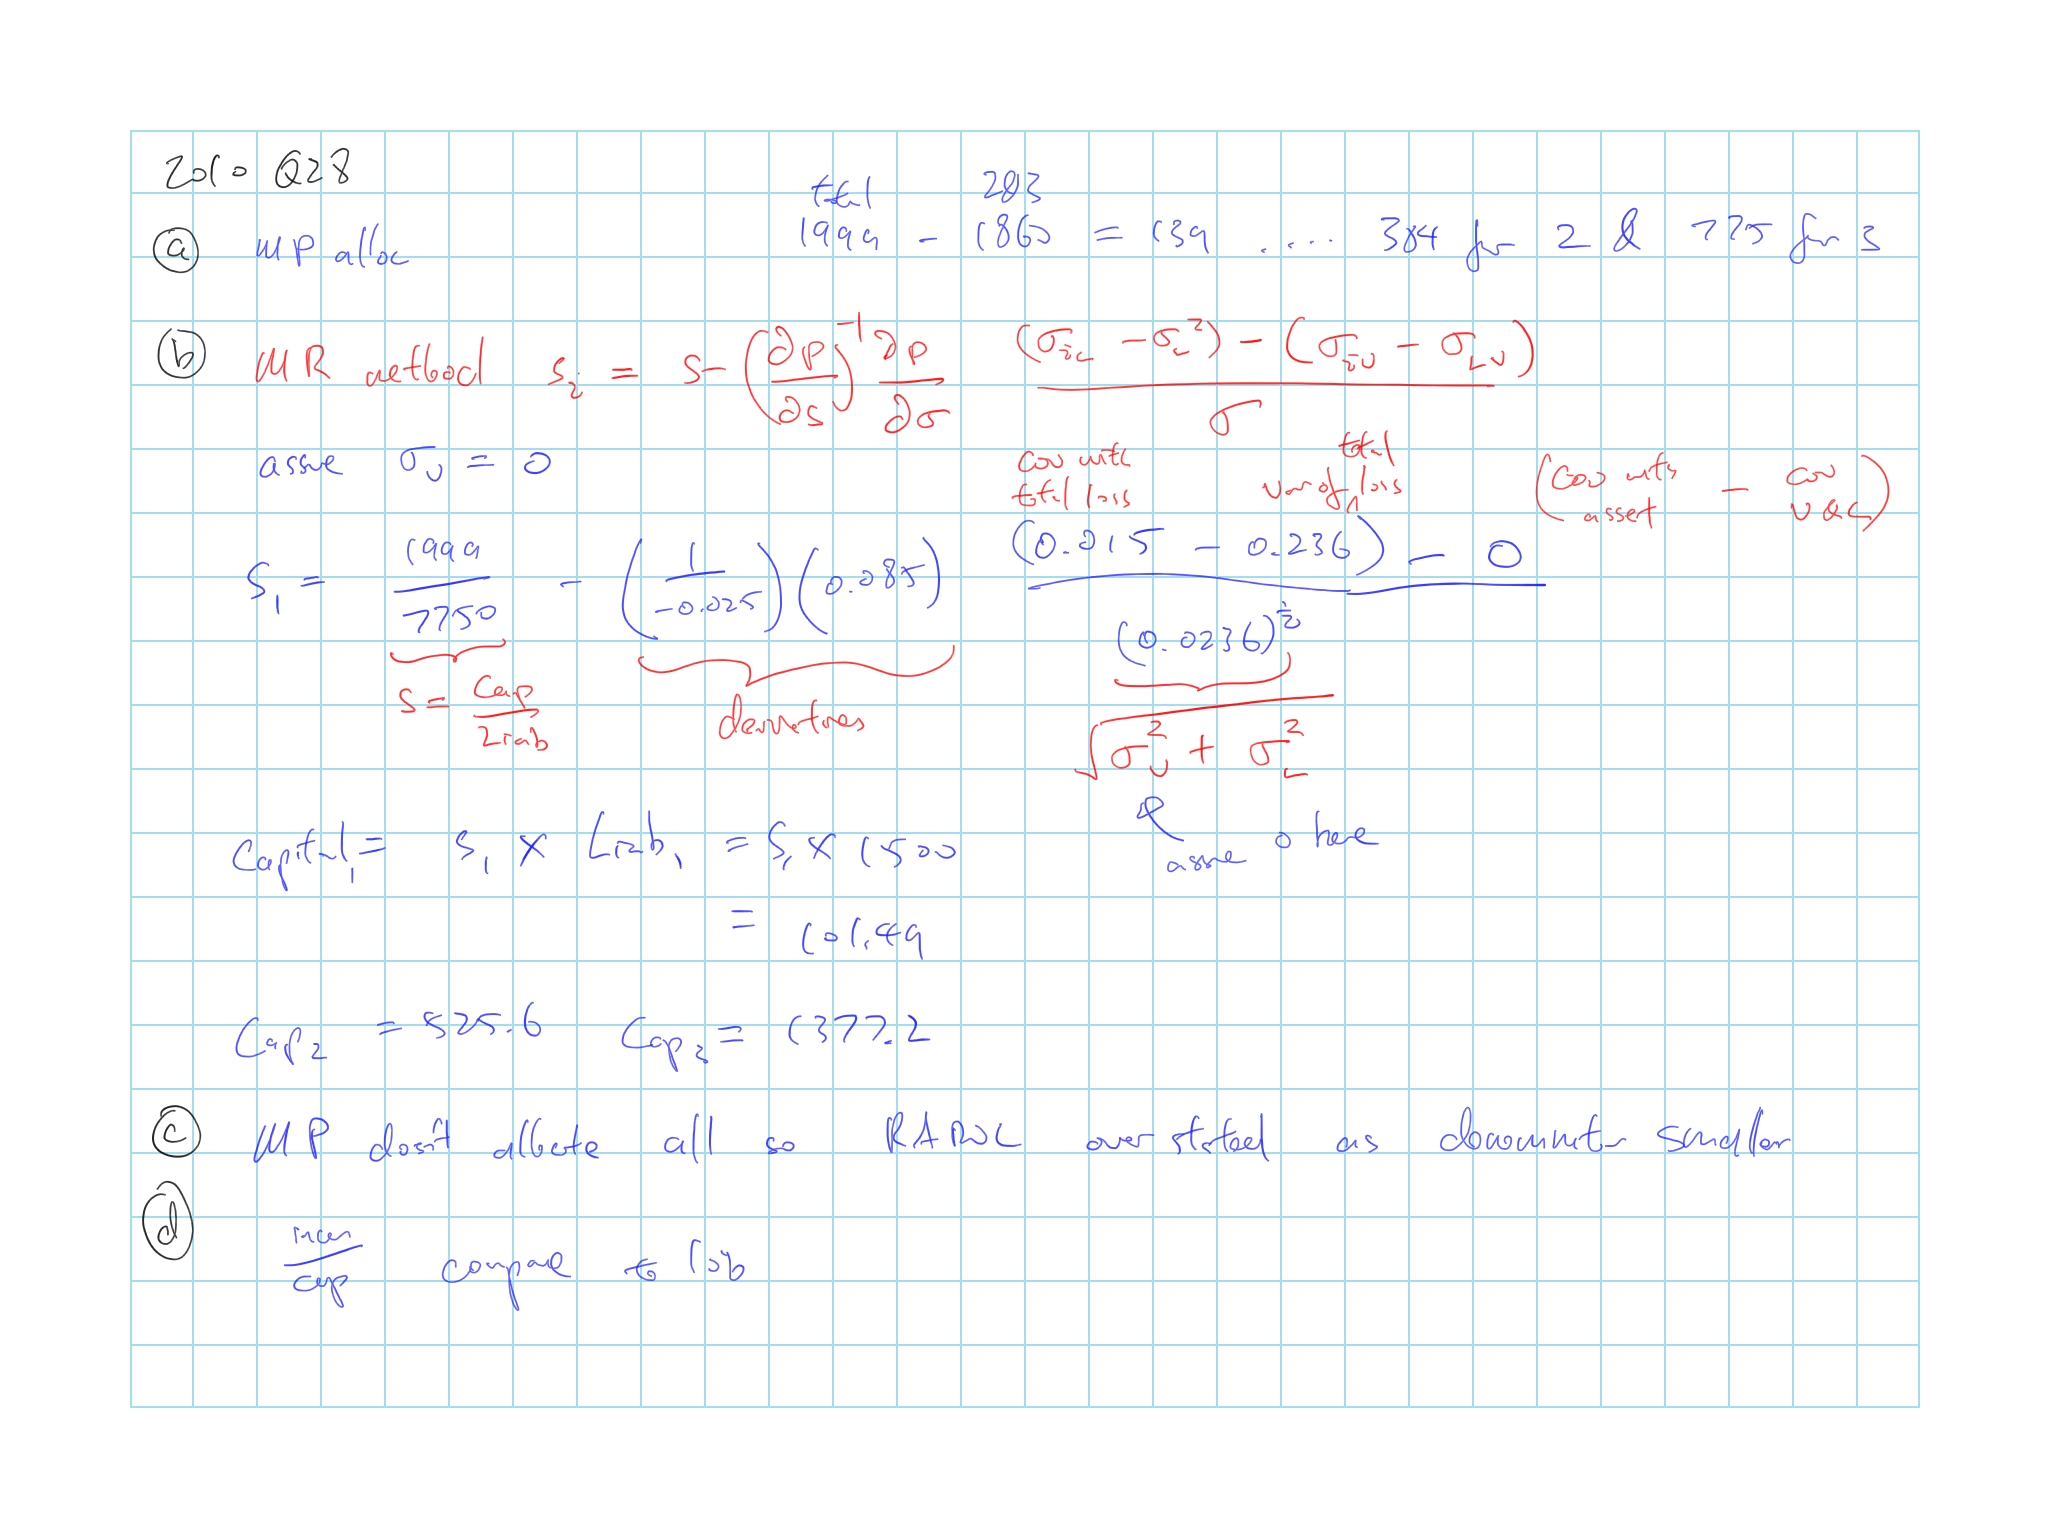 2010 Q28
total 2&3
(a) MP alloc 1999 - 1860 = 139 .... 384 for 2 & 775 for 3
(b) MR method s_i = s - (∂p/∂s)^-1 ∂p/∂σ ((σ_iL - σ_L^2) - (σ_iV - σ_LV)) / σ
assue σ_V = 0
cov with total loss
var of total loss
(cov with assert - cov V&L)
S_1 = 1999/7750 - (1/-0.025)(0.085) ((0.015 - 0.236) - 0) / (0.0236)^½
s = Cap/Liab
derivatives
√(σ_V^2 + σ_L^2)
assue 0 here
Capital_1 = s_1 × Liab_1 = s_1 × 1500
= 101.49
Cap_2 = 525.6 Cap_3 = 1377.2
(c) MP doesn't allocate all so RAROC overstated as denominator smaller
(d) incm/cap compare to 15%